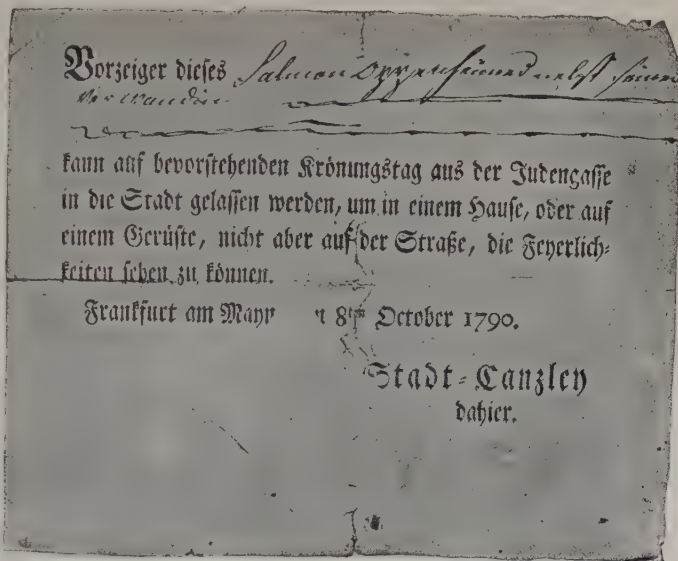 Vorzeiger dieses Salmon Oppenheimer nebst seinen
Verwandten
kann auf bevorstehenden Krönungstag aus der Judengasse
in die Stadt gelassen werden, um in einem Hause, oder auf
einem Gerüste, nicht aber auf der Straße, die Feyerlich-
keiten sehen zu können.
Frankfurt am Mayn 8ten October 1790.
Stadt-Canzley
dahier.